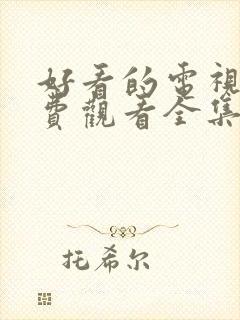 好看的電視
費觀看全集
托希尔